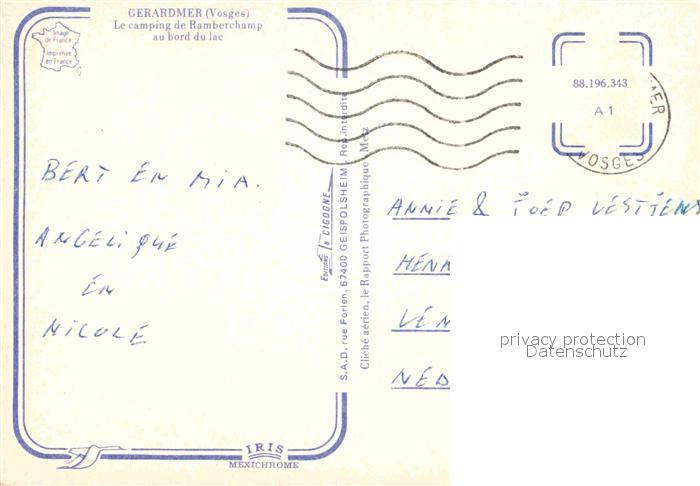 GERARDMER (Vosges)
Le camping de Ramberchamp
au bord du lac
Image
de France
Imprimée
en France
88.196.343
A 1
MER
VOSGES
BERT EN MIA.
ANGELIQUE
EN
NICOLE
EDITIONS la CIGOGNE
S.A.D. rue Forlen, 67400 GEISPOLSHEIM - Rep. interdite
Cliché aérien, le Rapport Photographique - Metz
ANNIE & JOEP
HEN
VEN
NED
privacy protection
Datenschutz
IRIS
MEXICHROME